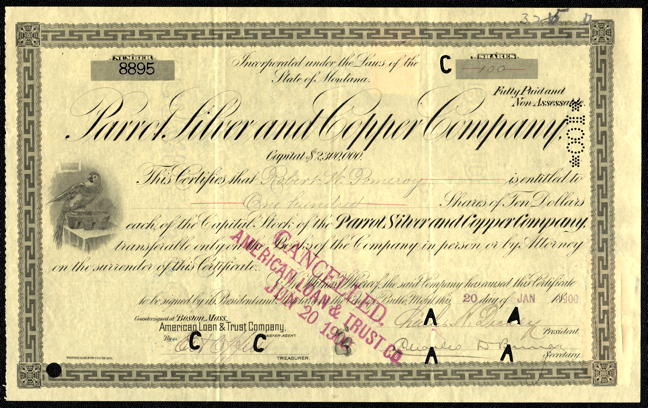 NUMBER
8895
Incorporated under the Laws of the
State of Montana.
C
SHARES
100
Fully Paid and
Non Assessable.
Parrot Silver and Copper Company.
Capital $2,300,000.
This Certifies that Robert W. Pomeroy is entitled to
One hundred Shares of Ten Dollars
each, of the Capital Stock of the Parrot Silver and Copper Company,
transferable only on the Books of the Company in person or by Attorney
on the surrender of this Certificate.
the said Company has caused this Certificate
to be signed by its President and
Butte, Mont. this 20 day of JAN 1900
CANCELLED.
AMERICAN LOAN & TRUST CO
JUN 20
Countersigned at Boston, Mass.
American Loan & Trust Company,
TRANSFER AGENT
President
C C
TREASURER.
Secretary